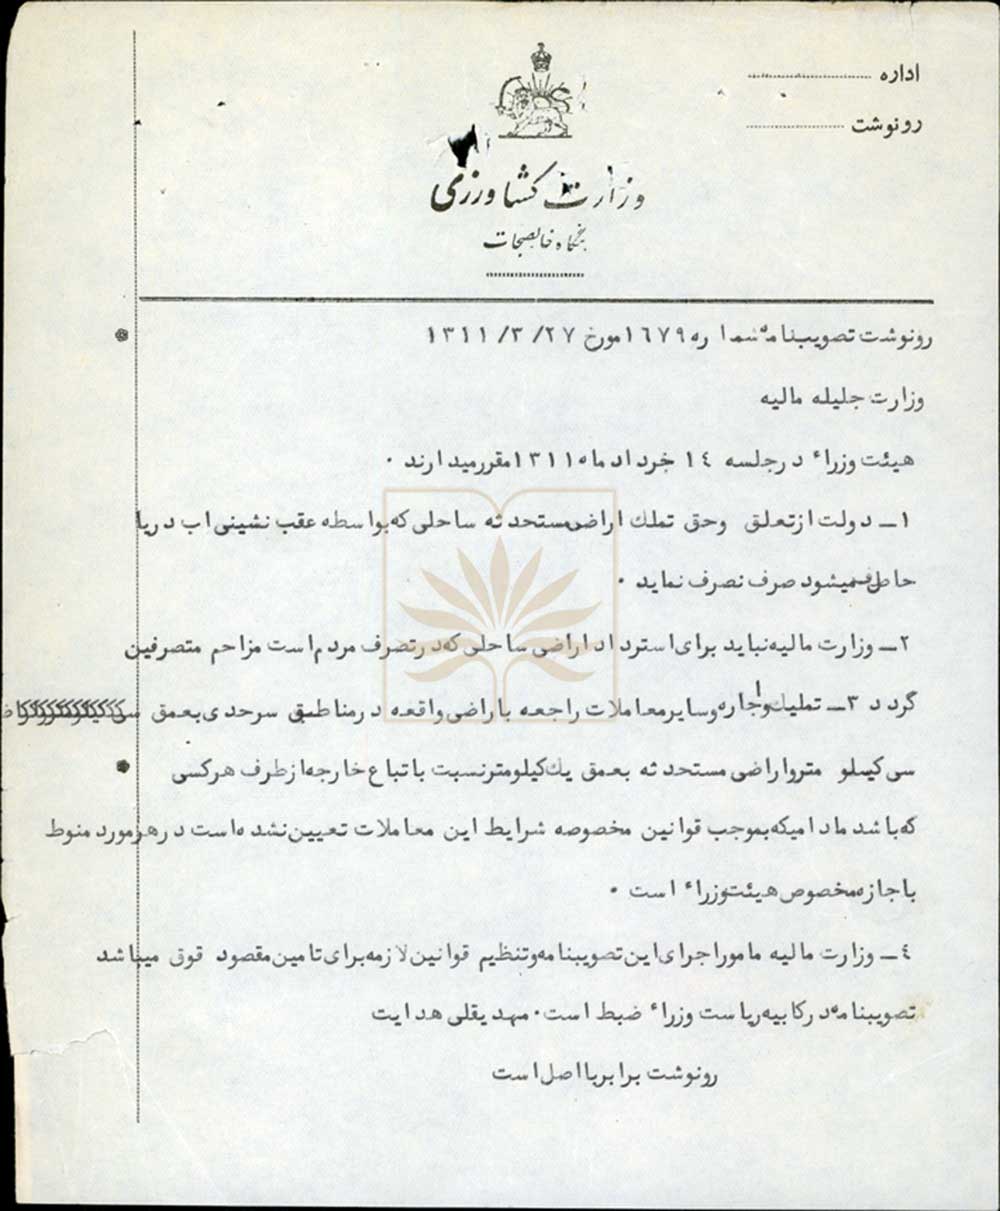 اداره
رونوشت
وزارت کشاورزی
بنگاه خالصجات
رونوشت تصویبنامه شماره ۱۶۷۹ مورخ ۲۷/ ۳/ ۱۳۱۱
وزارت جلیله مالیه
هیئت وزراء در جلسه ۱٤ خرداد ماه ۱۳۱۱ مقرر میدارند ۰
۱ــ دولت از تعلق وحق تملك اراضی مستحدثه ساحلی که بواسطه عقب نشینی اب دریا
حاصل میشود صرف نصرف نماید ۰
۲ــ وزارت مالیه نباید برای استرداد اراضی ساحلی که در تصرف مردم است مزاحم متصرفین
گردد ۳ــ تملیك واجاره وسایر معاملات راجعه باراضی واقعه در مناطق سرحدی بعمق
سی کیلو متر واراضی مستحدثه بعمق یك کیلومتر نسبت باتباع خارجه از طرف هرکسی
که باشد مادامیکه بموجب قوانین مخصوصه شرایط این معاملات تعیین نشده است در هر مورد منوط
باجازه مخصوص هیئت وزراء است ۰
٤ــ وزارت مالیه مامور اجرای این تصویبنامه وتنظیم قوانین لازمه برای تامین مقصود قوق میباشد
تصویبنامه در کابیه ریاست وزراء ضبط است ۰ مهدیقلی هدایت
رونوشت برابر با اصل است